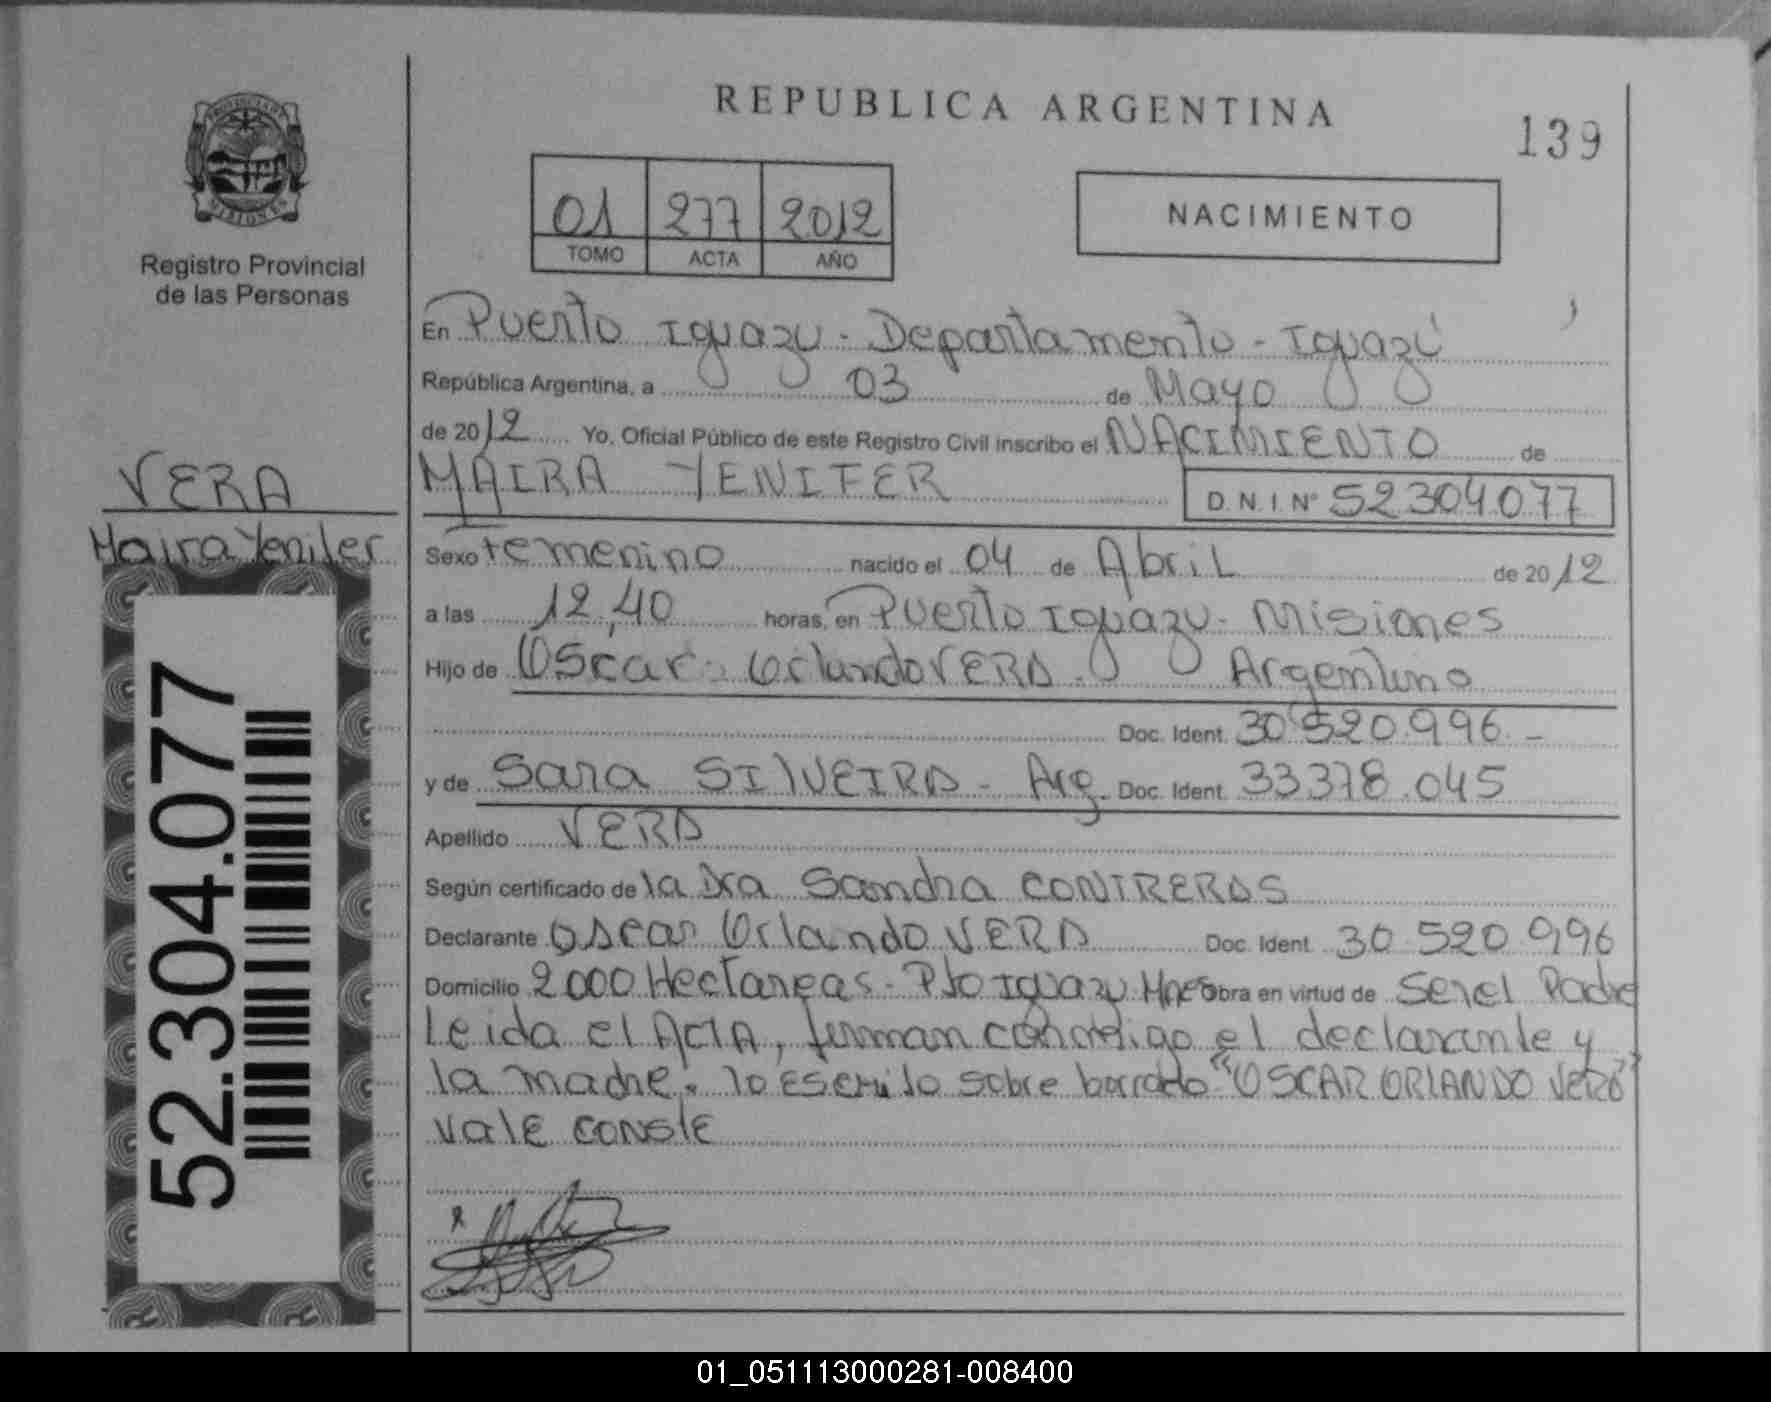 REPUBLICA ARGENTINA
139
01 277 2012
TOMO ACTA AÑO
NACIMIENTO
PROVINCIA DE
MISIONES
Registro Provincial
de las Personas
VERA
Maira Yenifer
52.304.077
En Puerto Iguazu - Departamento - Iguazú
República Argentina, a 03 de Mayo
de 2012 Yo, Oficial Público de este Registro Civil inscribo el NACIMIENTO de
MAIRA YENIFER D.N.I. Nº 52304077
Sexo Femenino nacido el 04 de Abril de 2012
a las 12,40 horas, en Puerto Iguazu - Misiones
Hijo de Oscar Orlando VERA - Argentino
Doc. Ident. 30 520.996 -
y de Sara SILVEIRA - Arg. Doc. Ident. 33378.045
Apellido VERA
Según certificado de la Dra Sandra CONTRERAS
Declarante Oscar Orlando VERA Doc. Ident. 30 520 996
Domicilio 2000 Hectareas - Pto Iguazu Mnes Obra en virtud de Ser el Padre
Leida el ActA, firman conmigo el declarante y
la madre. lo Escrito sobre borrado "OSCAR ORLANDO VERA"
Vale conste
01_051113000281-008400